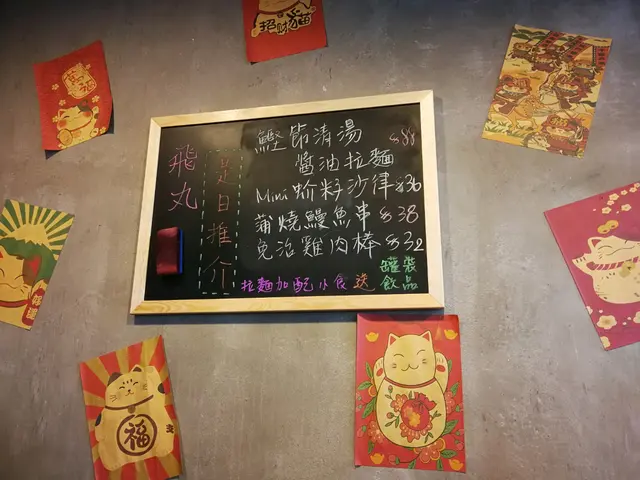 招財猫
飛丸
是日推介
鰹節清湯 $88
醬油拉麵
Mini 蚧籽沙律 $36
蒲燒鰻魚串 $38
免治雞肉棒 $32
拉麵加配小食送罐裝飲品
福